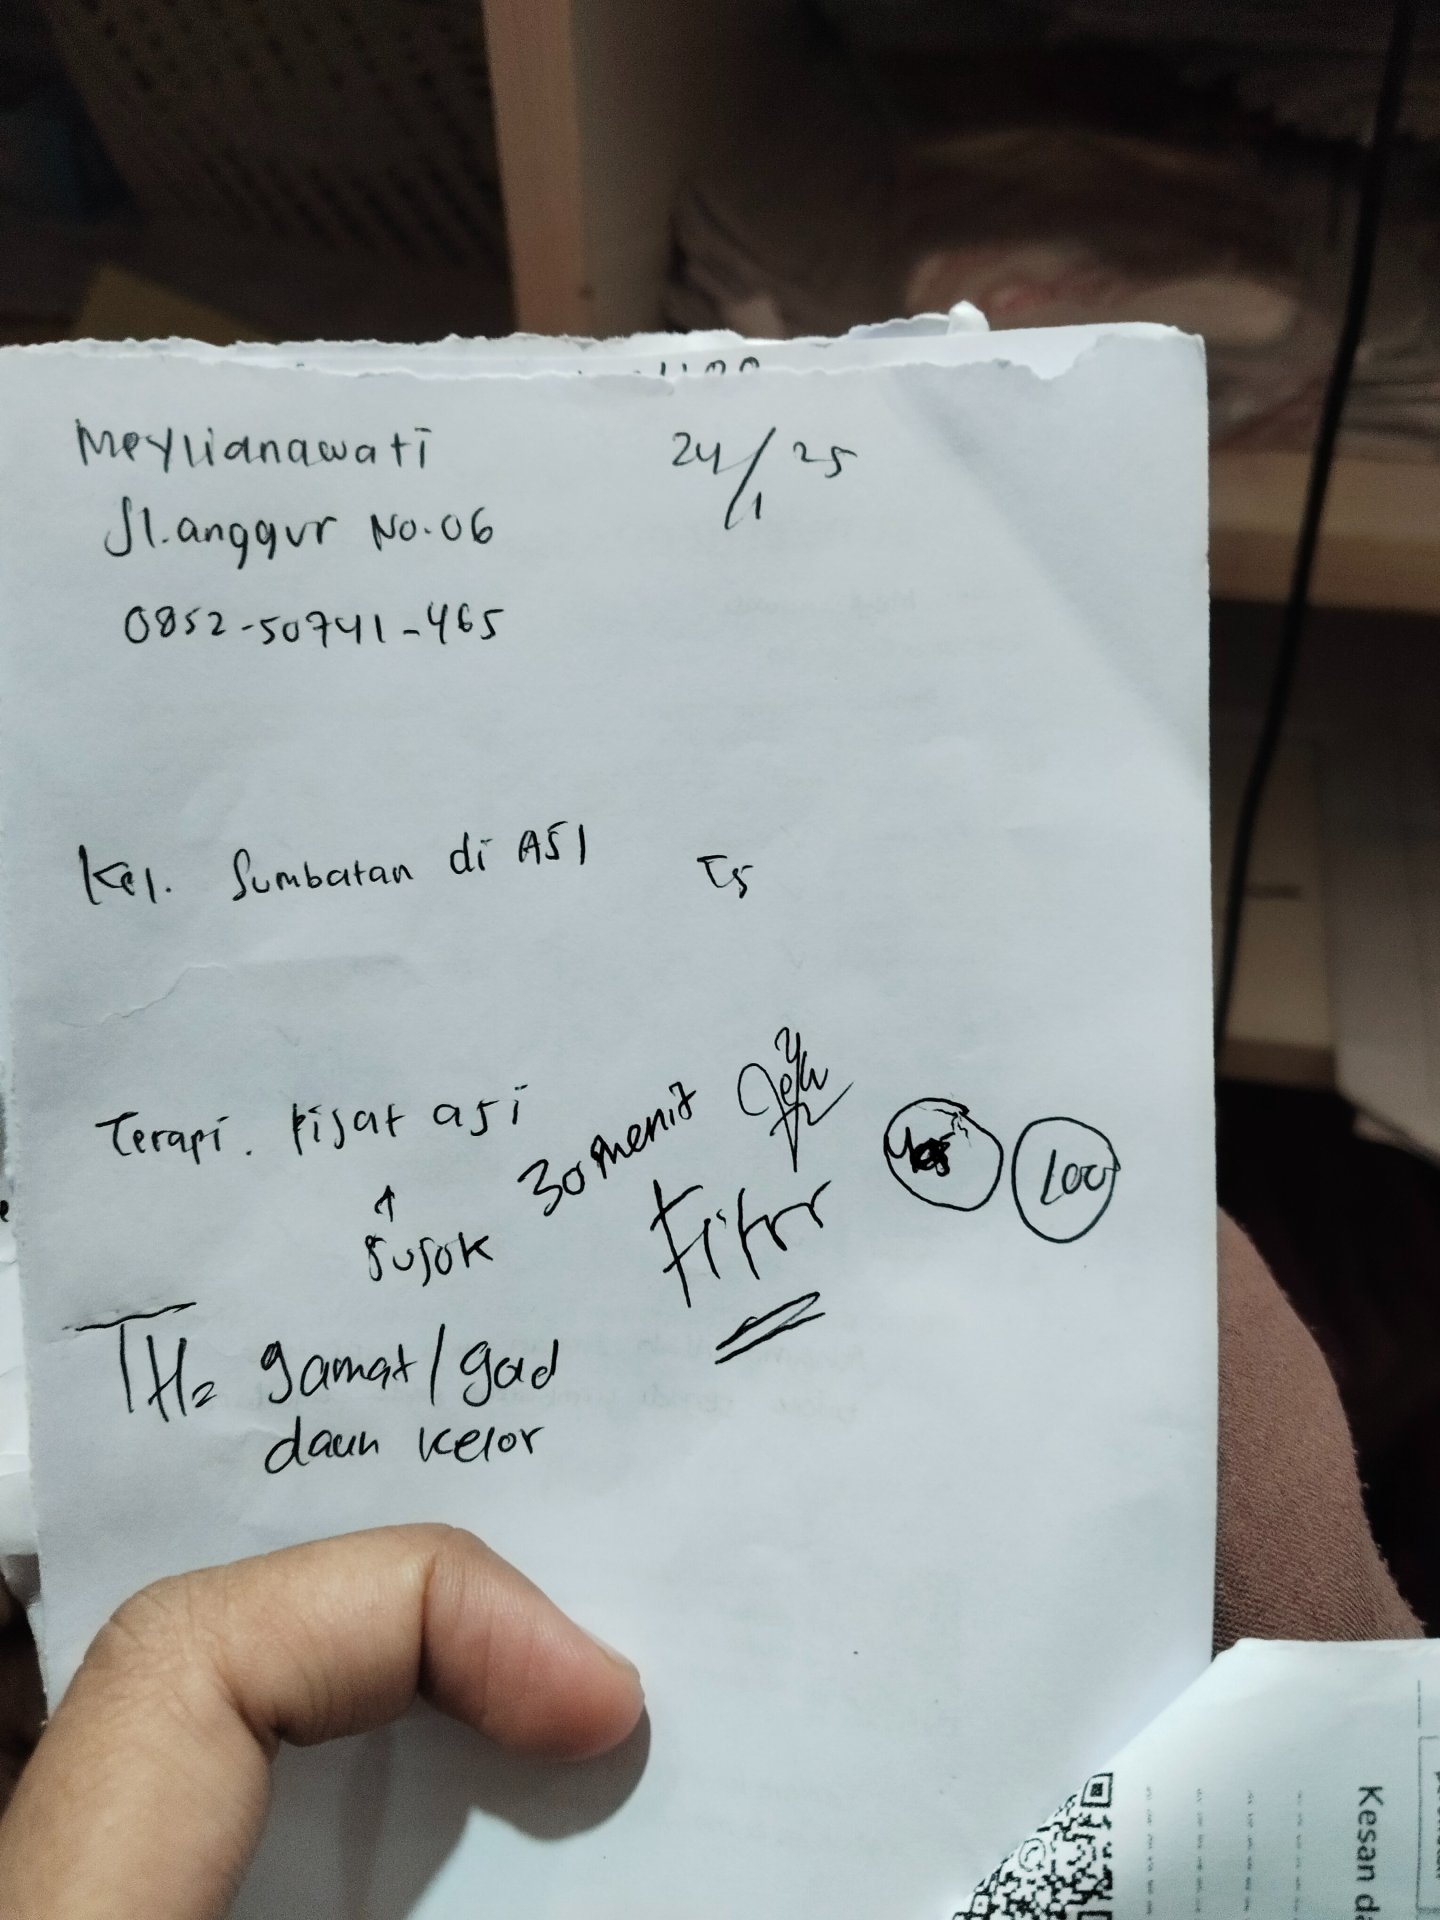 Meylianawati 24/1 25
Jl. anggur No. 06
0852-50741-465
Kel. Sumbatan di ASI
Terapi. Pijat asi 30 menit
↑
sujok
Fitrr
100
TH= gamat/gad
daun kelor
Kesan da